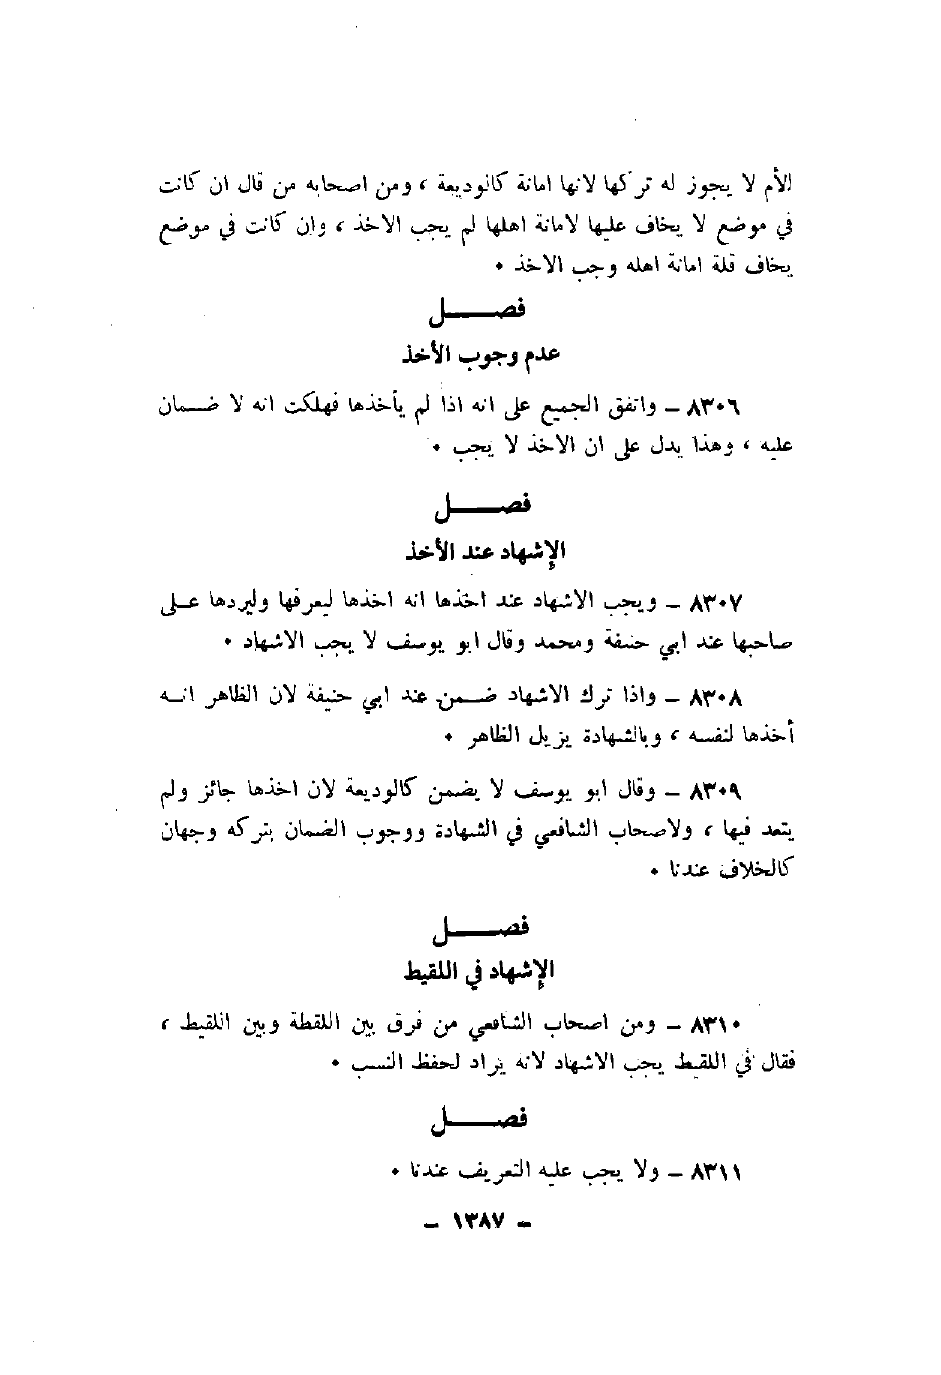 الأم لا يجوز له تركها لانها امانة كالوديعة ، ومن اصحابه من قال ان كانت
في موضع لا يخاف عليها لامانة اهلها لم يجب الاخذ ، وان كانت في موضع
يخاف قلة امانة اهله وجب الاخذ ٠
فصـــــل
عدم وجوب الأخذ
٨٣٠٦ – واتفق الجميع على انه اذا لم يأخذها فهلكت انه لا ضـــمان
عليه ، وهذا يدل على ان الاخذ لا يجب ٠
فصـــــل
الإشهاد عند الأخذ
٨٣٠٧ – ويجب الاشهاد عند اخذها انه اخذها ليعرفها وليردها علـى
صاحبها عند ابي حنيفة ومحمد وقال ابو يوسف لا يجب الاشهاد ٠
٨٣٠٨ – واذا ترك الاشهاد ضــمن عند ابي حنيفة لان الظاهر انــه
أخذها لنفسه ، وبالشهادة يزيل الظاهر ٠
٨٣٠٩ – وقال ابو يوسف لا يضمن كالوديعة لان اخذها جائز ولم
يتعد فيها ، ولاصحاب الشافعي في الشهادة ووجوب الضمان بتركه وجهان
كالخلاف عندنا ٠
فصـــــل
الإشهاد في اللقيط
٨٣١٠ – ومن اصحاب الشافعي من فرق بين اللقطة وبين اللقيط ،
فقال في اللقيط يجب الاشهاد لانه يراد لحفظ النسب ٠
فصـــــل
٨٣١١ – ولا يجب عليه التعريف عندنا ٠
– ١٣٨٧ –